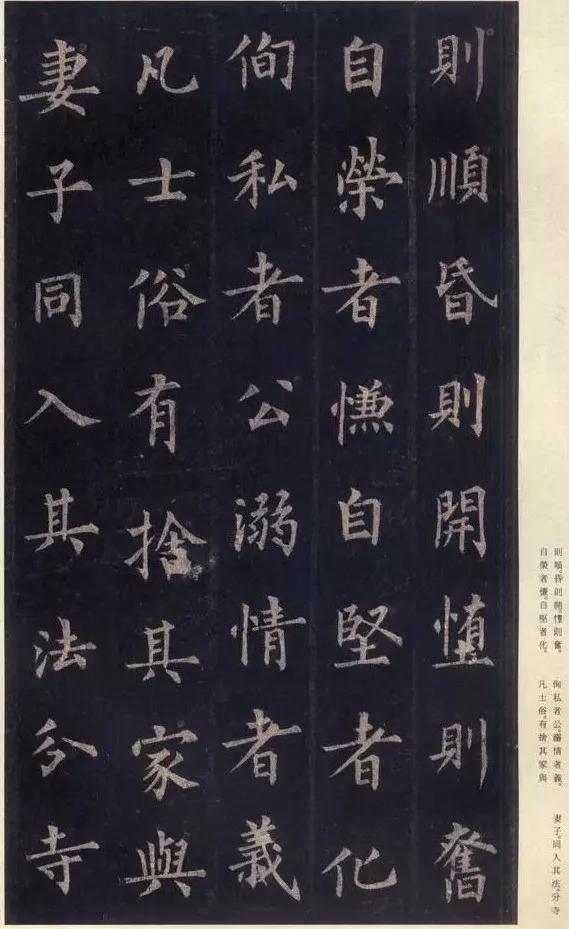 則順昏則開墮則奮
自榮者慊自堅者化
侚私者公溺情者義
凡士俗有捨其家與
妻子同入其法分寺
則順。昏則開。墮則奮。
自榮者慊。自堅者化。
侚私者公。溺情者義。
凡士俗。有捨其家與
妻子。同入其法。分寺